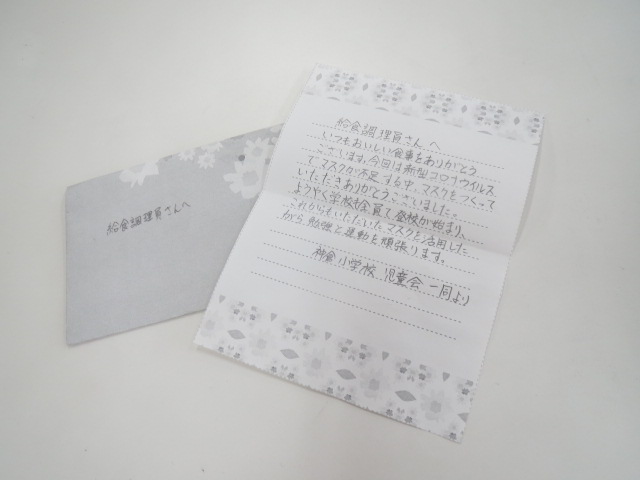 給食調理員さんへ
給食調理員さんへ
いつもおいしい食事をありがとう
ございます。今回は新型コロナウイルス
でマスクが不足する中、マスクをつくって
いただきありがとうございました。
ようやく学校も全員で登校が始まり、
これからもいただいたマスクを活用しな
がら勉強と運動を頑張ります。
神倉小学校 児童会 一同より